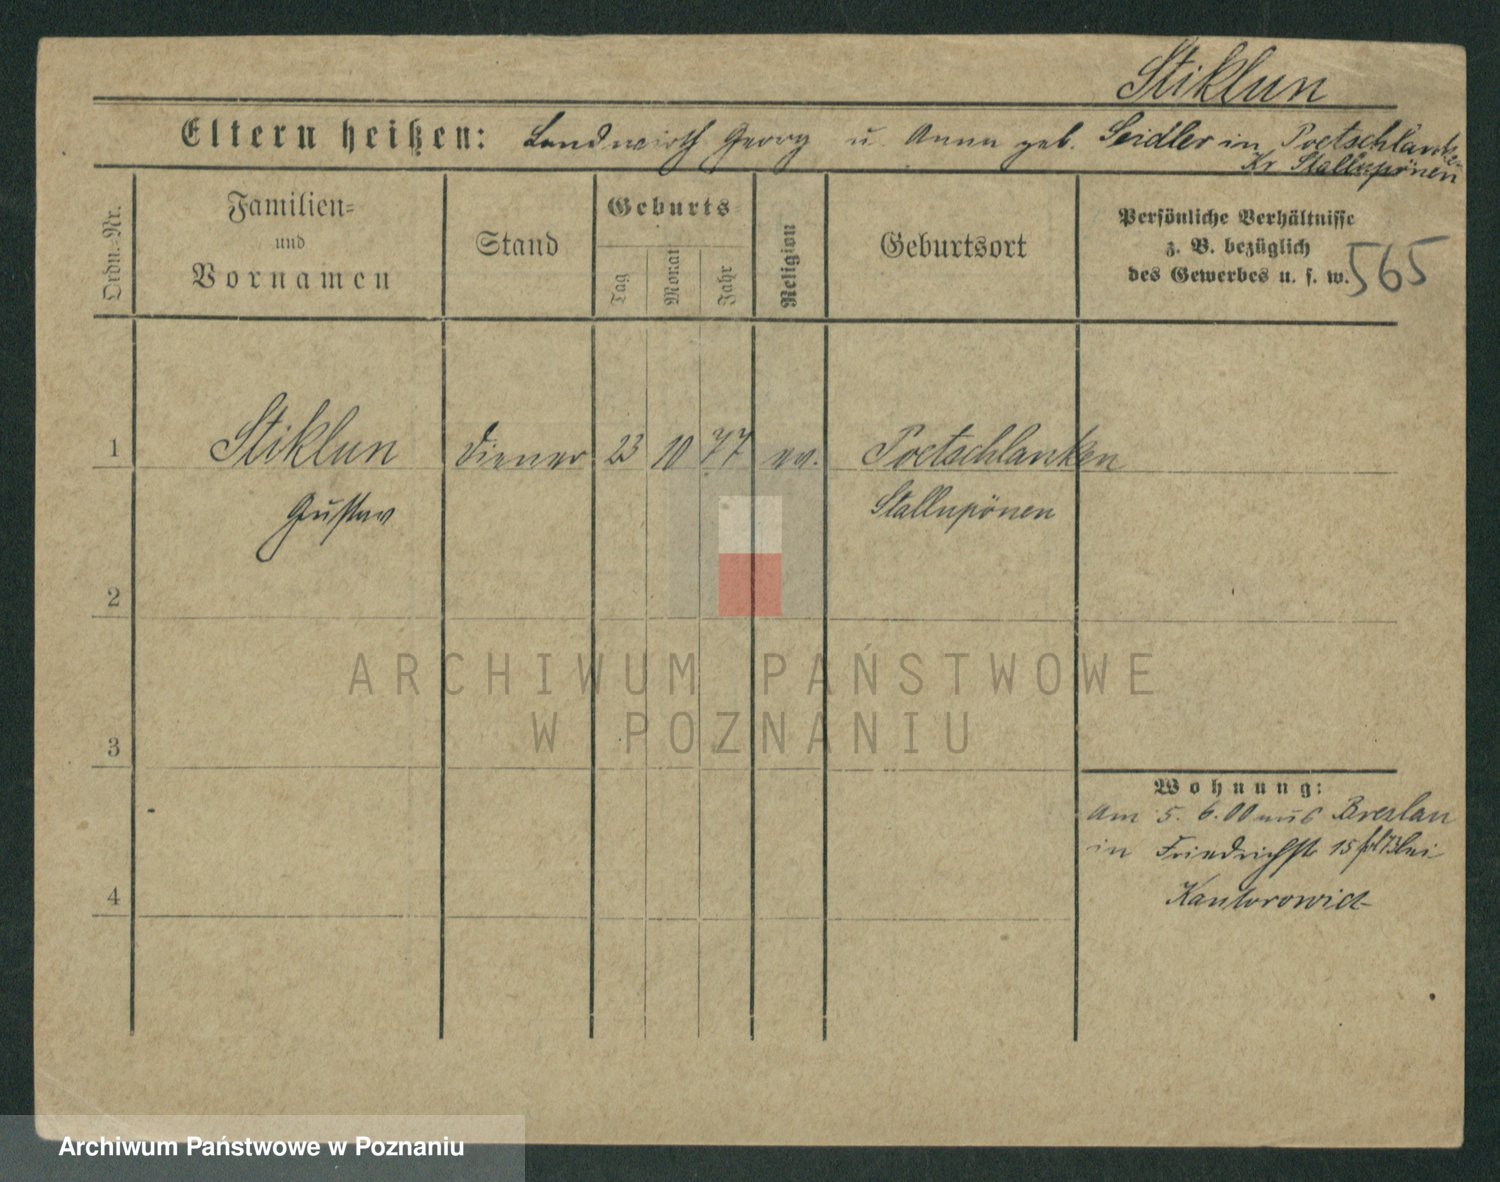 Stiklun
Eltern heißen: Landwirth Georg u. Anna geb. Seidler in Poetschlanken
Kr Stallupönen
Ordn.-Nr.
Familien-
und
Vornamen
Stand
Geburts-
Tag
Monat
Jahr
Religion
Geburtsort
Persönliche Verhältnisse
z. B. bezüglich
des Gewerbes u. s. w.
565
1 Stiklun Diener 23 10 77 ev. Poetschlanken
Gustav Stallupönen
2
3
4
Wohnung:
Am 5. 6.00 aus Breslau
in Friedrichstr 15 bei
Kantorowicz
ARCHIWUM PAŃSTWOWE
W POZNANIU
Archiwum Państwowe w Poznaniu